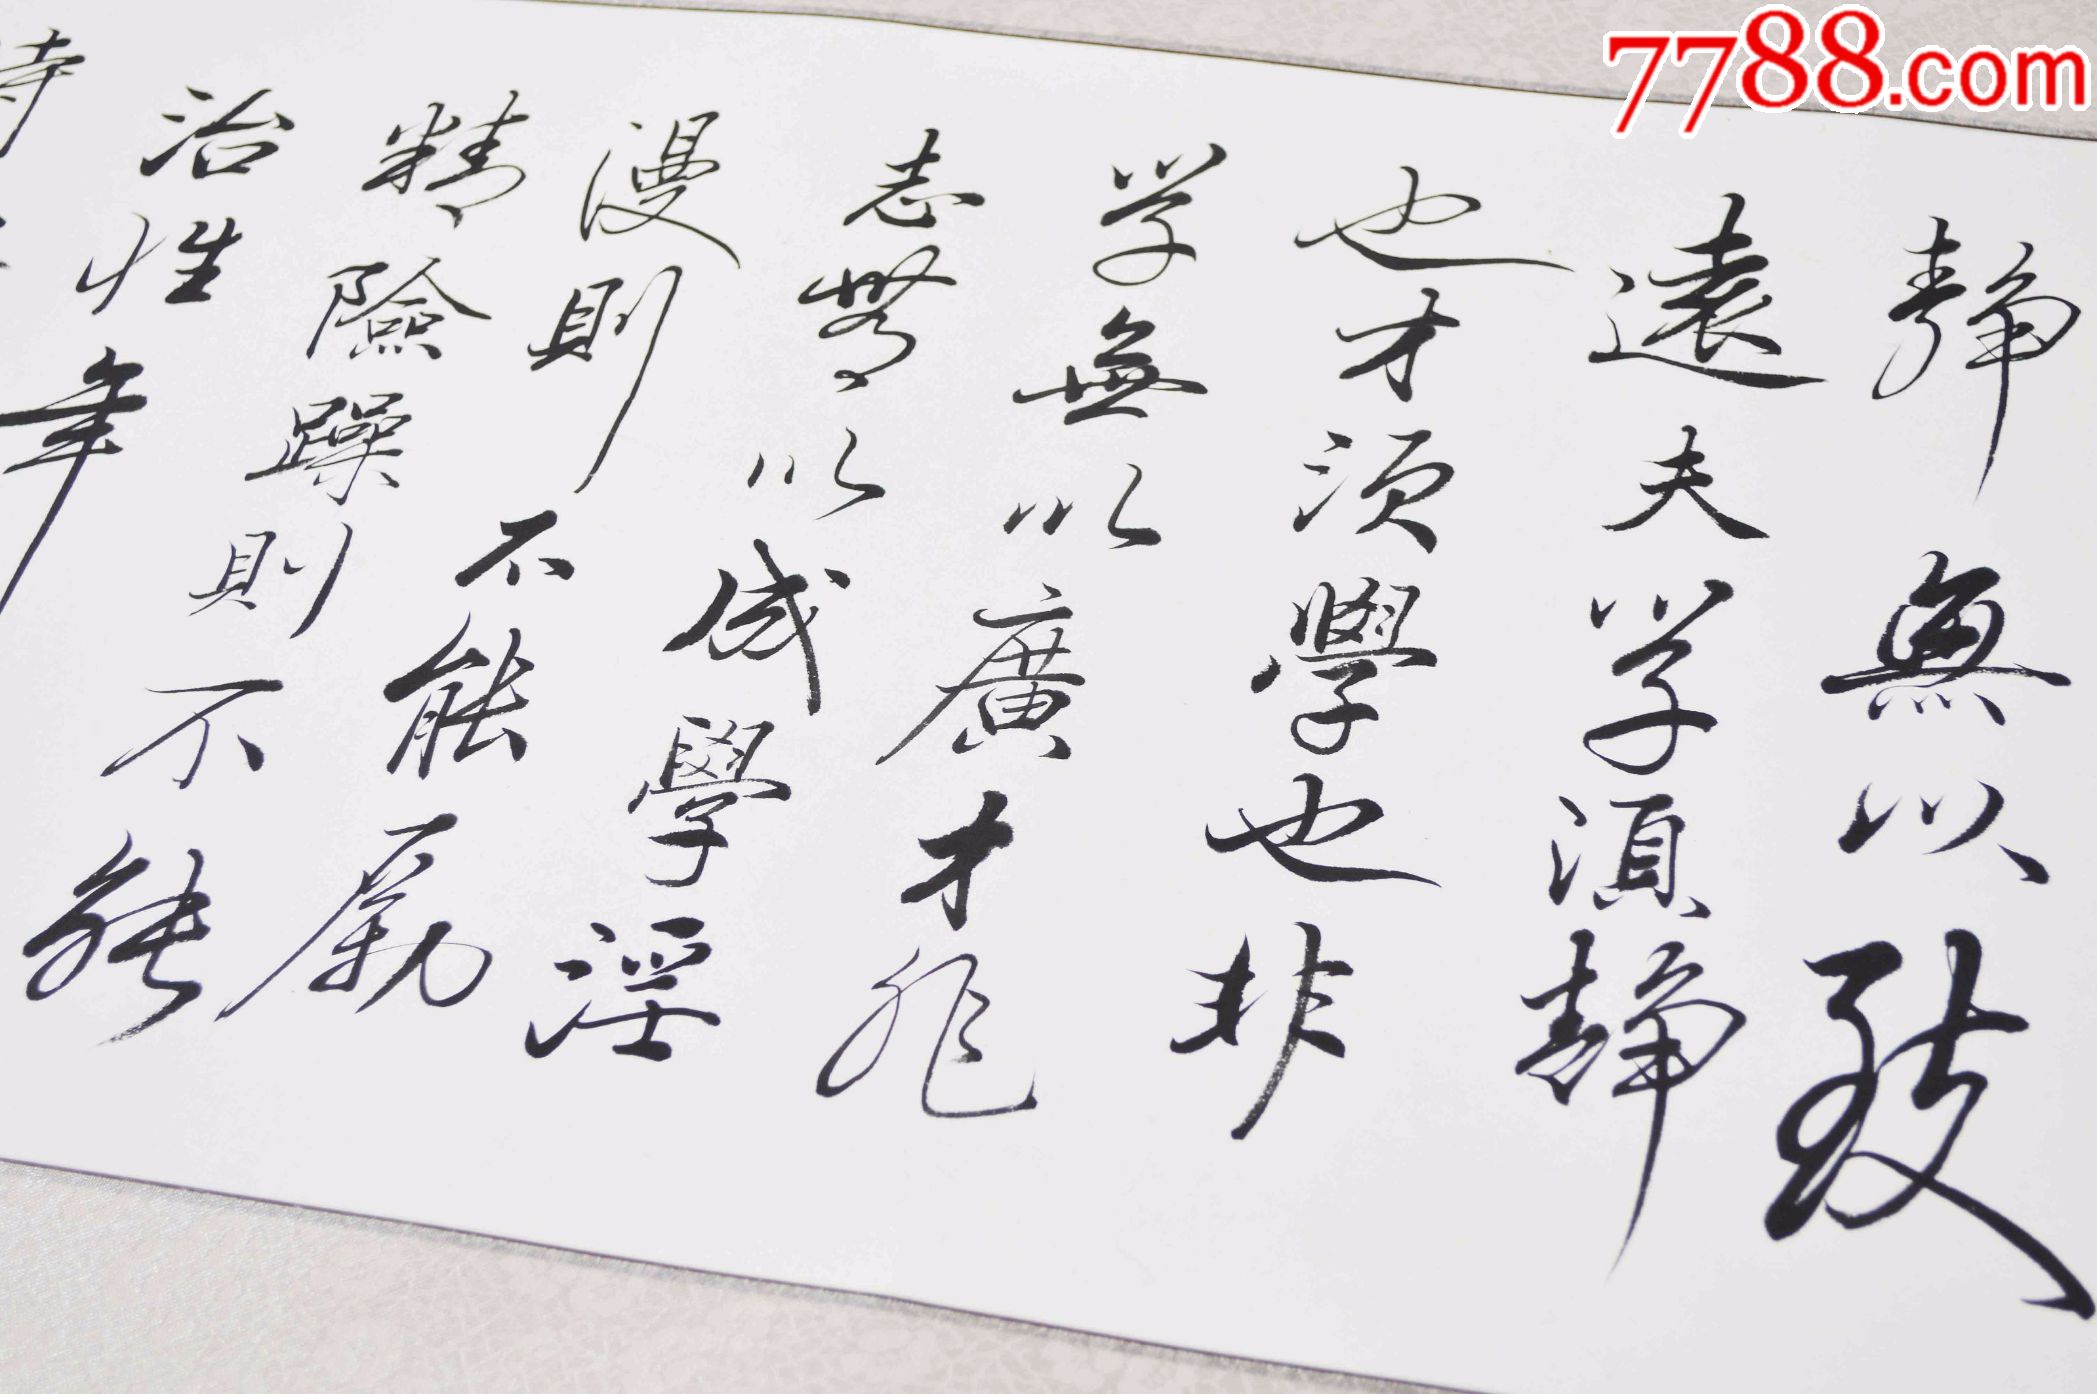 7788.com
静無以致
遠夫学須静
也才須學也非
学無以廣才非
志無以成學淫
漫則不能勵
精險躁則不能
治性年